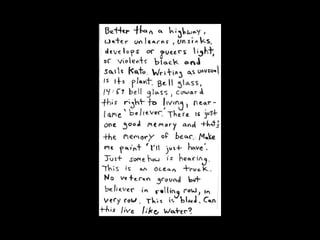 Better than a highway,
water unlearns, unsinks,
develops or queers light,
or violents black and
sails Kato. Writing as unusual
is its plant. Bell glass,
14:59 bell glass, coward
this right to living, near-
lame 'believer.' There is just
one good memory and that's
the memory of bear. Make
me paint 'I'll just have'.
Just somehow is hearing.
This is an ocean truck.
No veteran ground but
believer in rolling row, in
very row. This is blood. Can
this live like water?